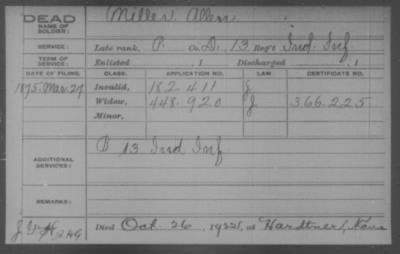 DEAD
NAME OF SOLDIER: Miller, Allen
SERVICE: Late rank, P Co. D, 13 Reg't Ind. Inf.
TERM OF SERVICE: Enlisted , 1 Discharged , 1
DATE OF FILING. CLASS. APPLICATION NO. LAW. CERTIFICATE NO.
1875. Mar. 27 Invalid, 182.411
Widow, 448.920 366.225
Minor,
ADDITIONAL SERVICES: 13 Ind Inf
REMARKS:
Died Oct. 26, 1922, at Hardtner, Kans